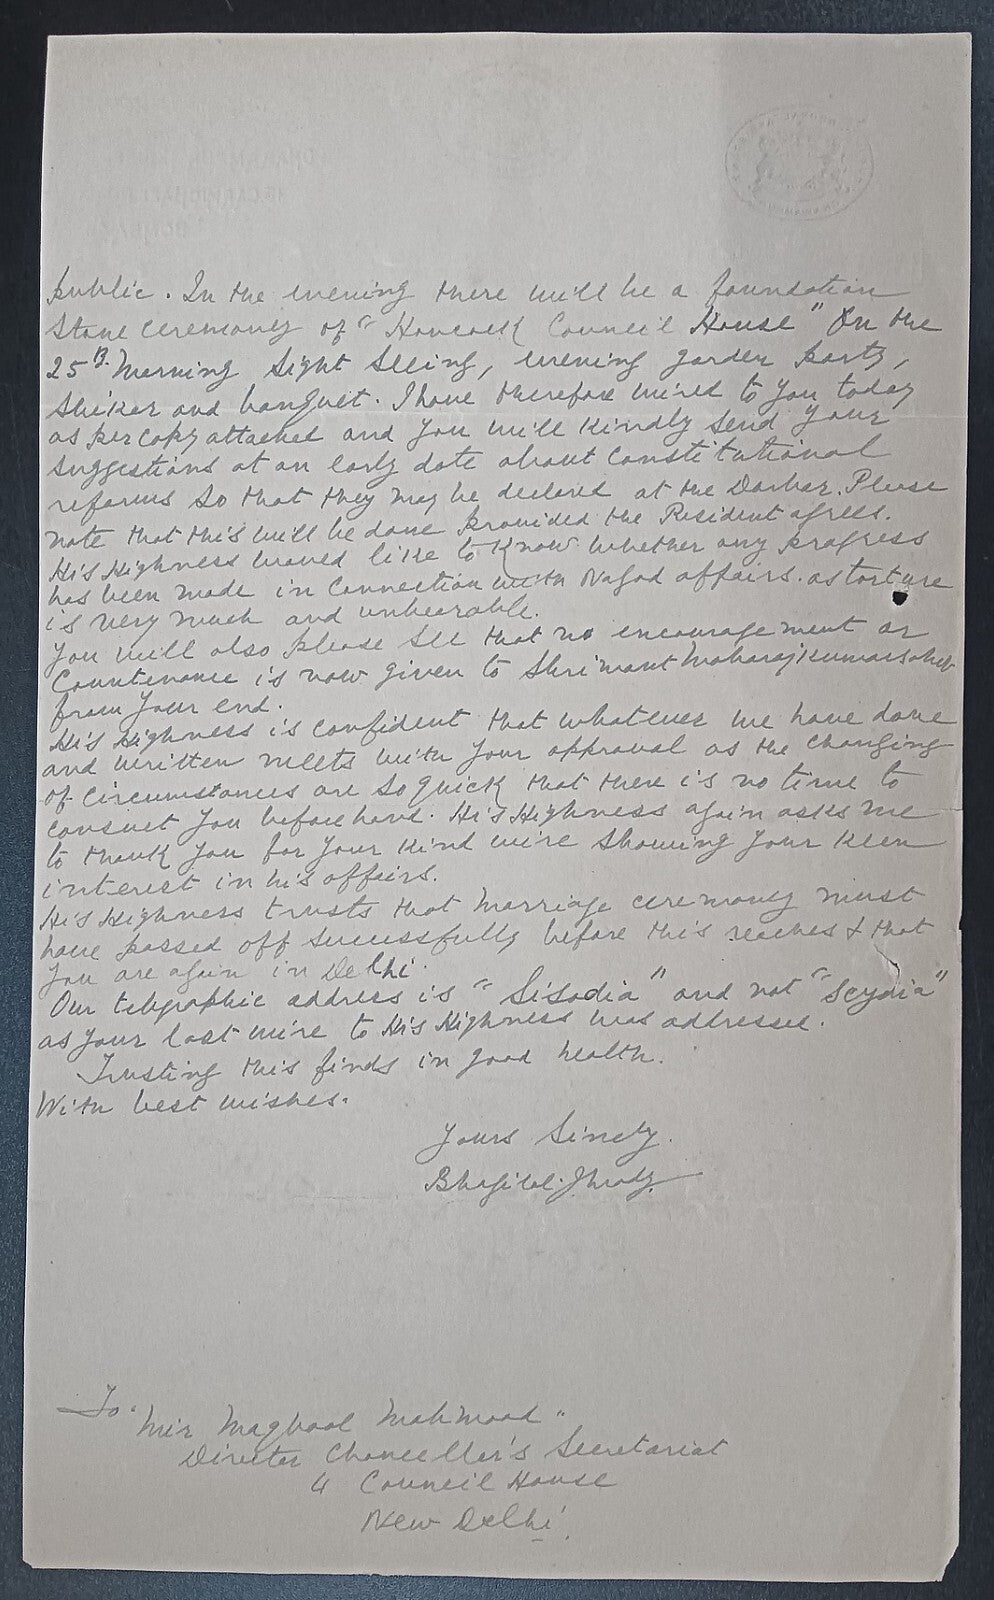 public. In the evening there will be a foundation
stone ceremony of "Hancock Council House" On the
25th Morning Sight Seeing, evening garden party,
Shikar and banquet. I have therefore wired to you today
as per copy attached and you will kindly send your
suggestions at an early date about constitutional
reforms so that they may be declared at the Darbar. Please
note that this will be done provided the Resident agrees.
His Highness would like to know whether any progress
has been made in connection with Nagod affairs. as torture
is very much and unbearable.
You will also please see that no encouragement or
Countenance is now given to Shrimant Maharajkumarsaheb
from your end.
His Highness is confident that whatever we have done
and written meets with your approval as the changing
of circumstances are so quick that there is no time to
consult you beforehand. His Highness again asks me
to thank you for your kind wire showing your keen
interest in his affairs.
His Highness trusts that marriage ceremony must
have passed off successfully before this reaches & that
you are again in Delhi.
Our telegraphic address is "Sisodia" and not "Scydia"
as your last wire to His Highness was addressed.
Trusting this finds in good health.
With best wishes.
Yours Sincly.
To
Mir Maqbool Mahmood
Director Chancellor's Secretariat
4 Council House
New Delhi